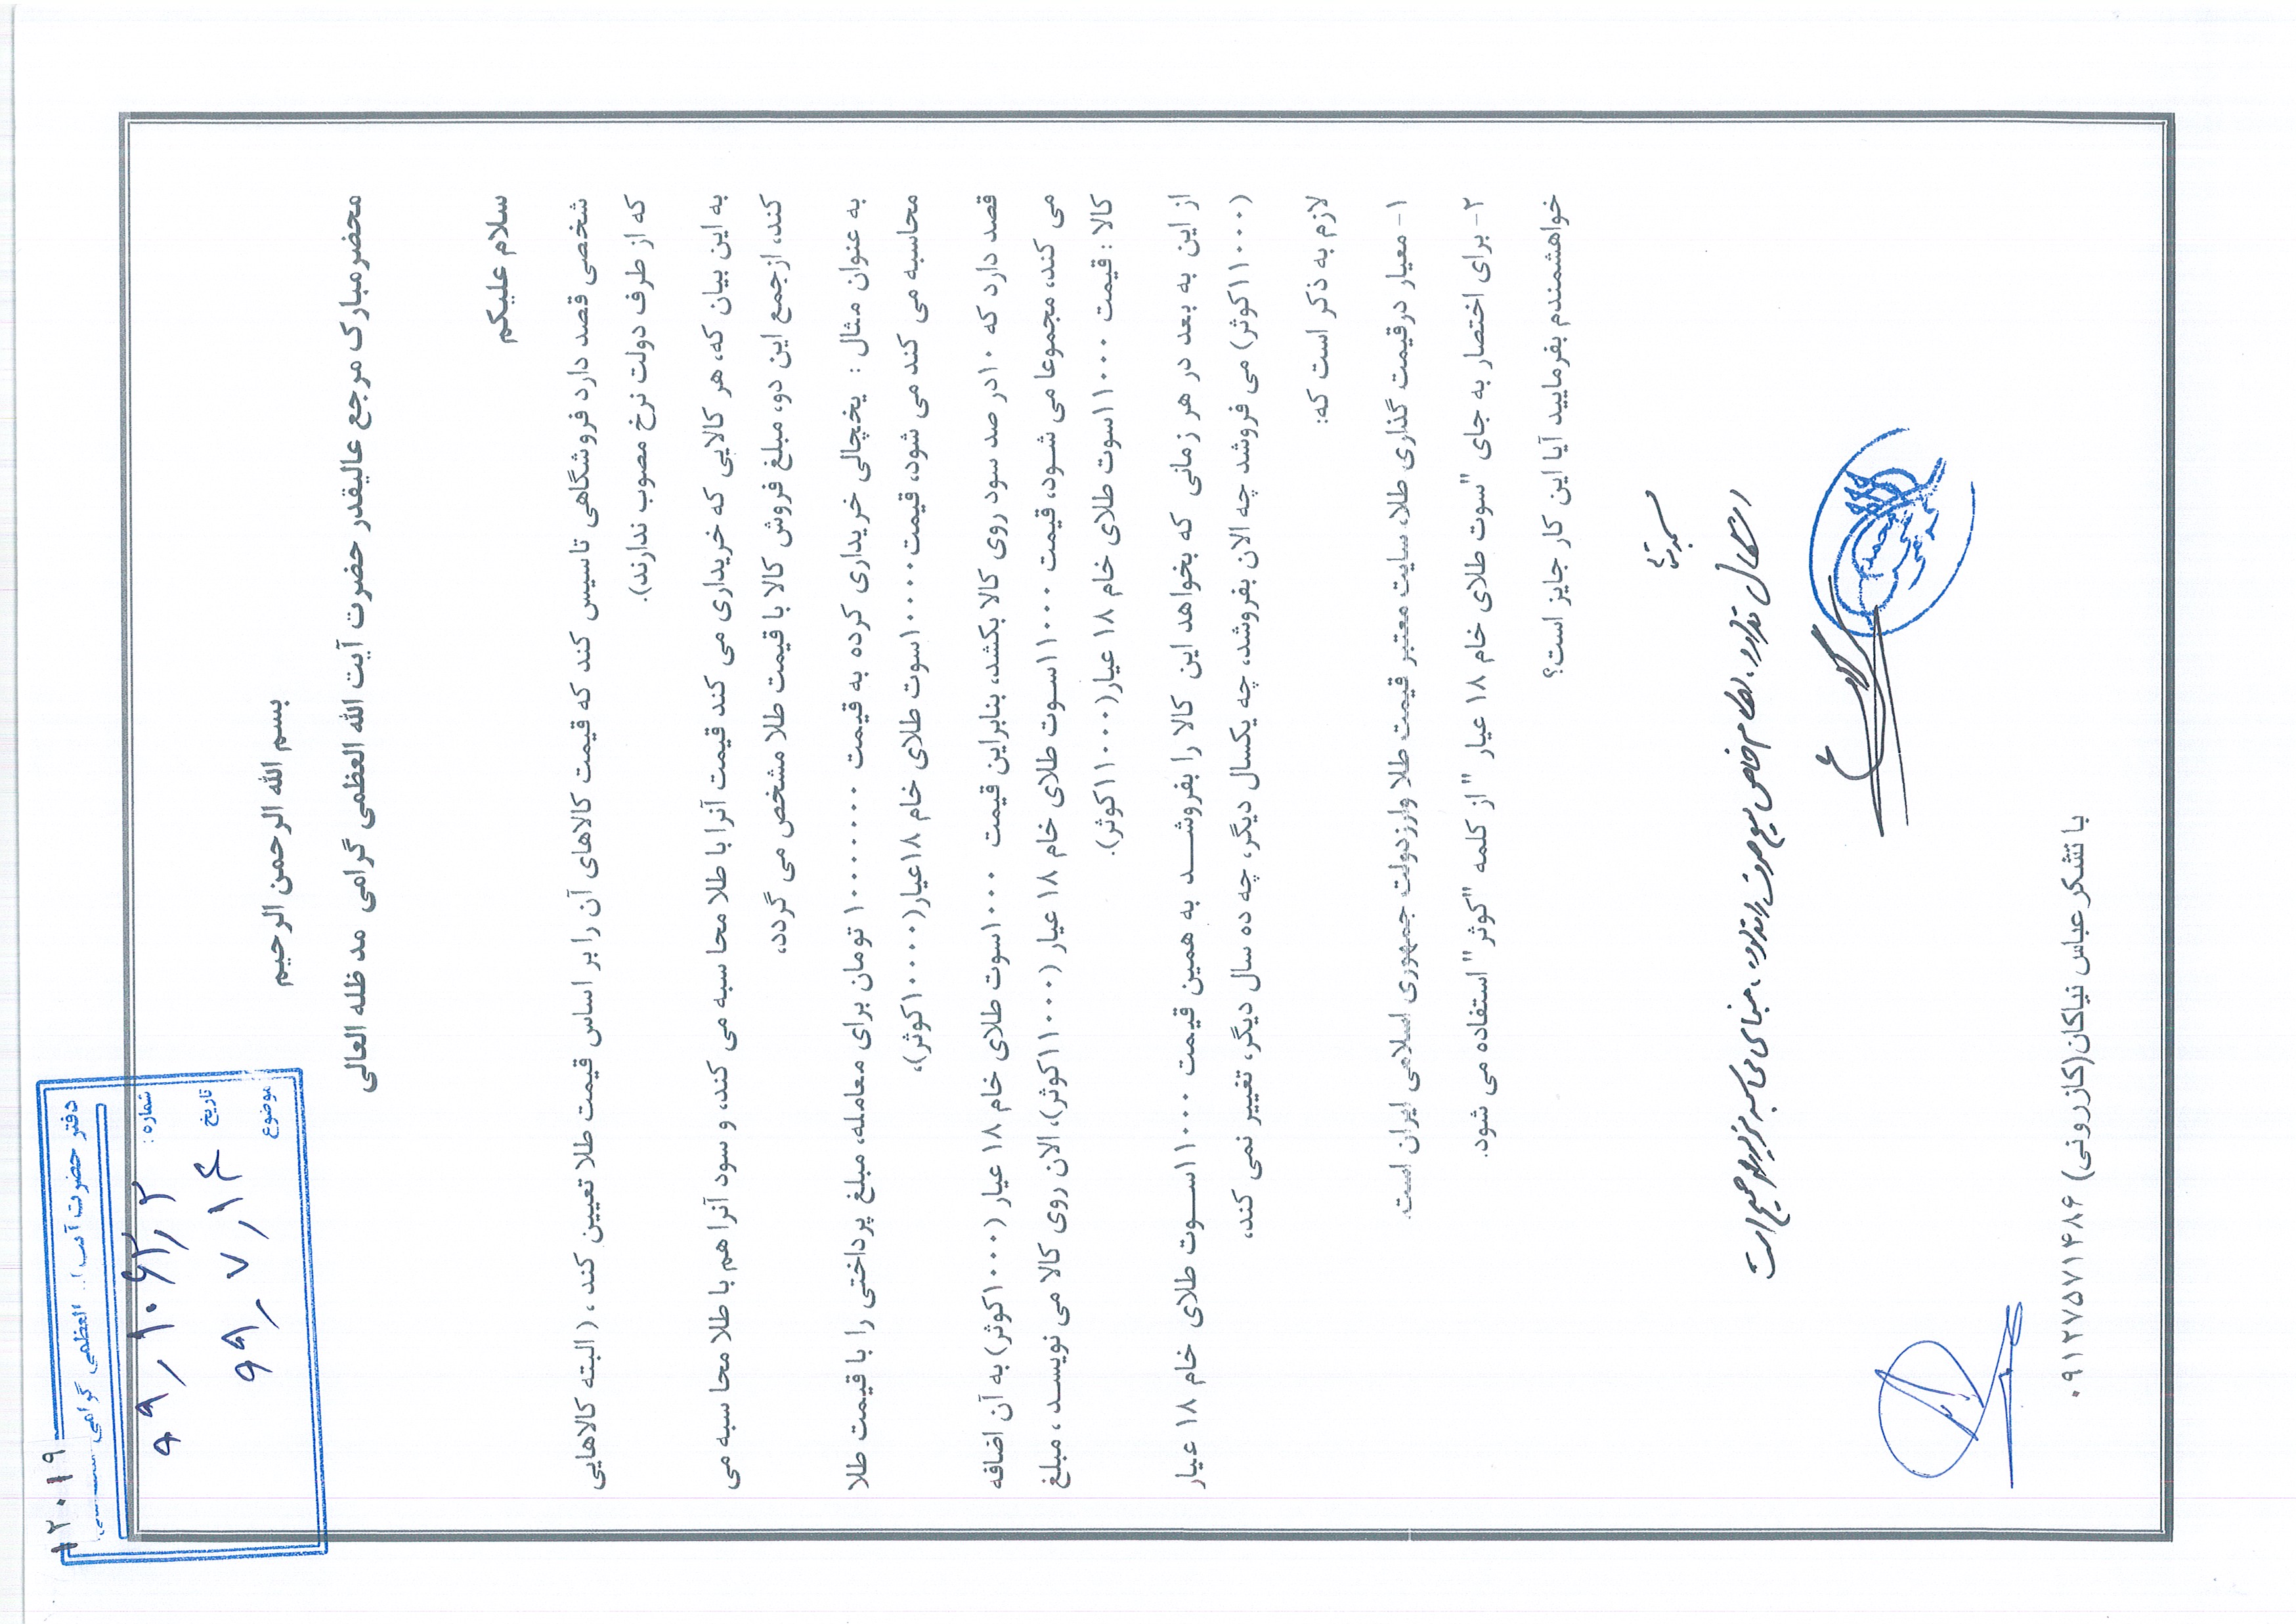 ۱۲۰۱۹
دفتر حضرت آیت ا... العظمی گرامی
شماره: ۹۹٫۱۰۶۲٫۲
تاریخ ۹۹٫۷٫۱۴
موضوع
بسم الله الرحمن الرحیم
محضرمبارک مرجع عالیقدر حضرت آیت الله العظمی گرامی مد ظله العالی
سلام علیکم
شخصی قصد دارد فروشگاهی تاسیس کند که قیمت کالاهای آن را بر اساس قیمت طلا تعیین کند ، ( البته کالاهایی
که از طرف دولت نرخ مصوب ندارند).
به این بیان که، هر کالایی که خریداری می کند قیمت آنرا با طلا محاسبه می کند، و سود آنرا هم با طلا محاسبه می
کند، ازجمع این دو، مبلغ فروش کالا با قیمت طلا مشخص می گردد،
به عنوان مثال : یخچالی خریداری کرده به قیمت ۱۰۰۰۰۰۰۰ تومان برای معامله، مبلغ پرداختی را با قیمت طلا
محاسبه می کند می شود، قیمت ۱۰۰۰۰سوت طلای خام ۱۸عیار(۱۰۰۰۰کوثر)،
قصد دارد که ۱۰در صد سود روی کالا بکشد، بنابراین قیمت ۱۰۰۰سوت طلای خام ۱۸ عیار (۱۰۰۰کوثر) به آن اضافه
می کند، مجموعا می شود، قیمت ۱۱۰۰۰سوت طلای خام ۱۸ عیار (۱۱۰۰۰کوثر)، الان روی کالا می نویسد ، مبلغ
کالا : قیمت ۱۱۰۰۰سوت طلای خام ۱۸ عیار(۱۱۰۰۰کوثر).
از این به بعد در هر زمانی که بخواهد این کالا را بفروشد به همین قیمت ۱۱۰۰۰سوت طلای خام ۱۸ عیار
(۱۱۰۰۰کوثر) می فروشد چه الان بفروشد، چه یکسال دیگر، چه ده سال دیگر، تغییر نمی کند،
لازم به ذکر است که:
۱- معیار درقیمت گذاری طلا، سایت معتبر قیمت طلا وارزدولت جمهوری اسلامی ایران است.
۲-برای اختصار به جای "سوت طلای خام ۱۸ عیار "از کلمه "کوثر" استفاده می شود.
خواهشمندم بفرمایید آیا این کار جایز است؟
اشکال ندارد،
با تشکر عباس نیاکان(کازرونی) ۰۹۱۲۷۵۷۱۴۸۶